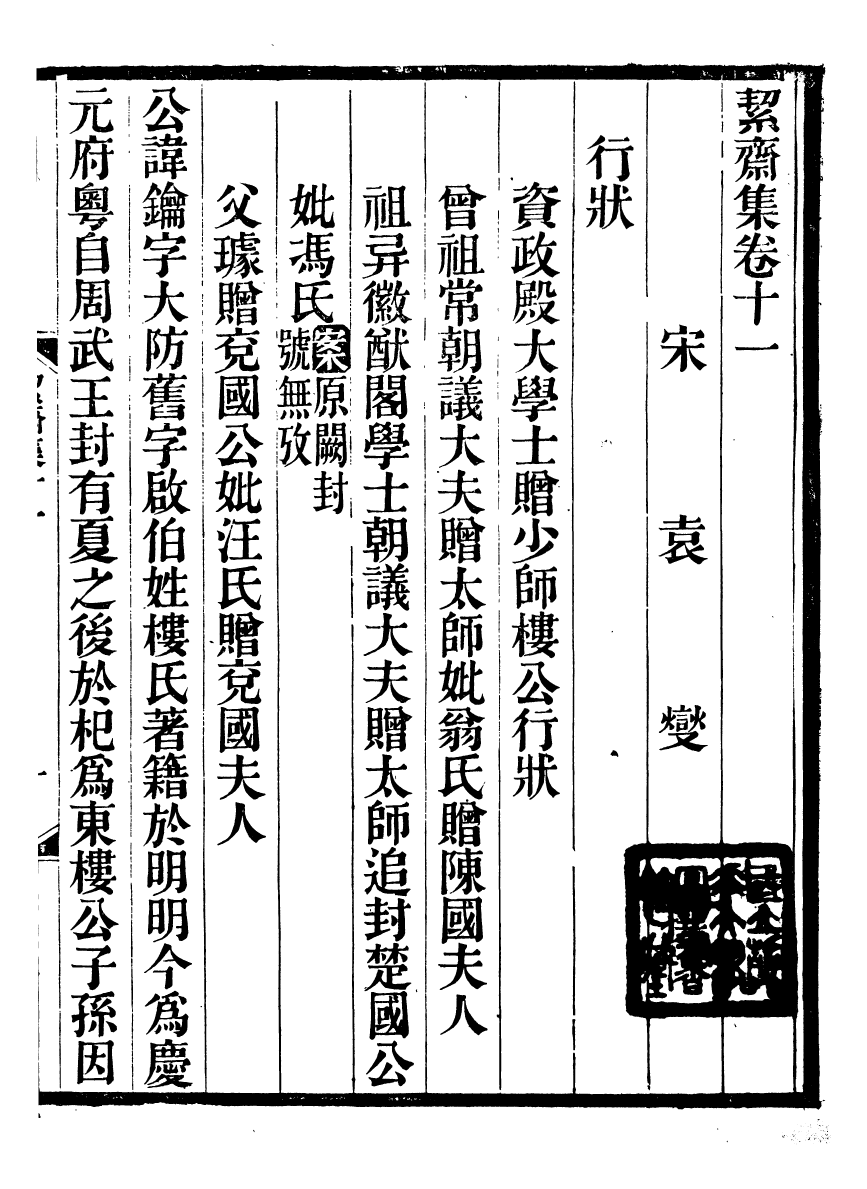 絜齋集卷十一
宋袁燮
行狀
資政殿大學士贈少師樓公行狀
曾祖常朝議大夫贈太師妣翁氏贈陳國夫人
祖异徽猷閣學士朝議大夫贈太師追封楚國公
妣馮氏案原闕封
號無攷
父璩贈兗國公妣汪氏贈兗國夫人
公諱鑰字大防舊字啟伯姓樓氏著籍於明明今爲慶
元府粵自周武王封有夏之後於杞爲東樓公子孫因